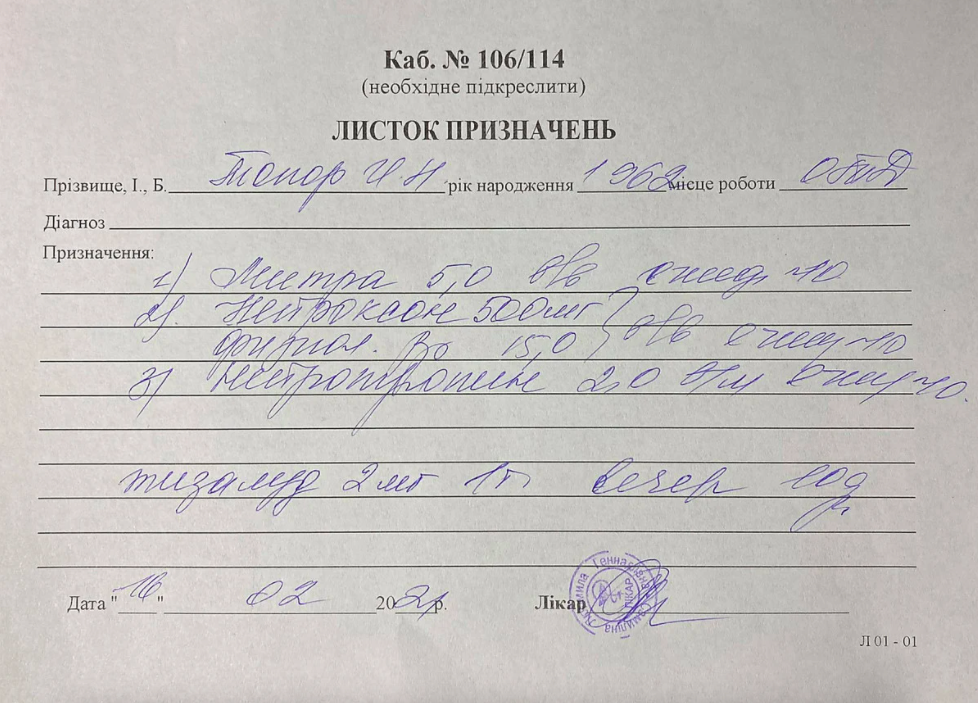 Каб. № 106/114
(необхідне підкреслити)
ЛИСТОК ПРИЗНАЧЕНЬ
Прізвище, І., Б. Топор И Н рік народження 1962 місце роботи
Діагноз
Призначення:
1) 5,0 в/в ежед №10
2). Нейроксон 500мг
физиол. р-р 15,0 } в/в ежед №10
3) Нейротропин 2,0 в/м ежед №10.
тизалуд 2мг 1т. вечер 10д
Дата "16" 02 20 р. Лікар
Людмила Геннадіївна
ЛІКАР
Л 01 - 01